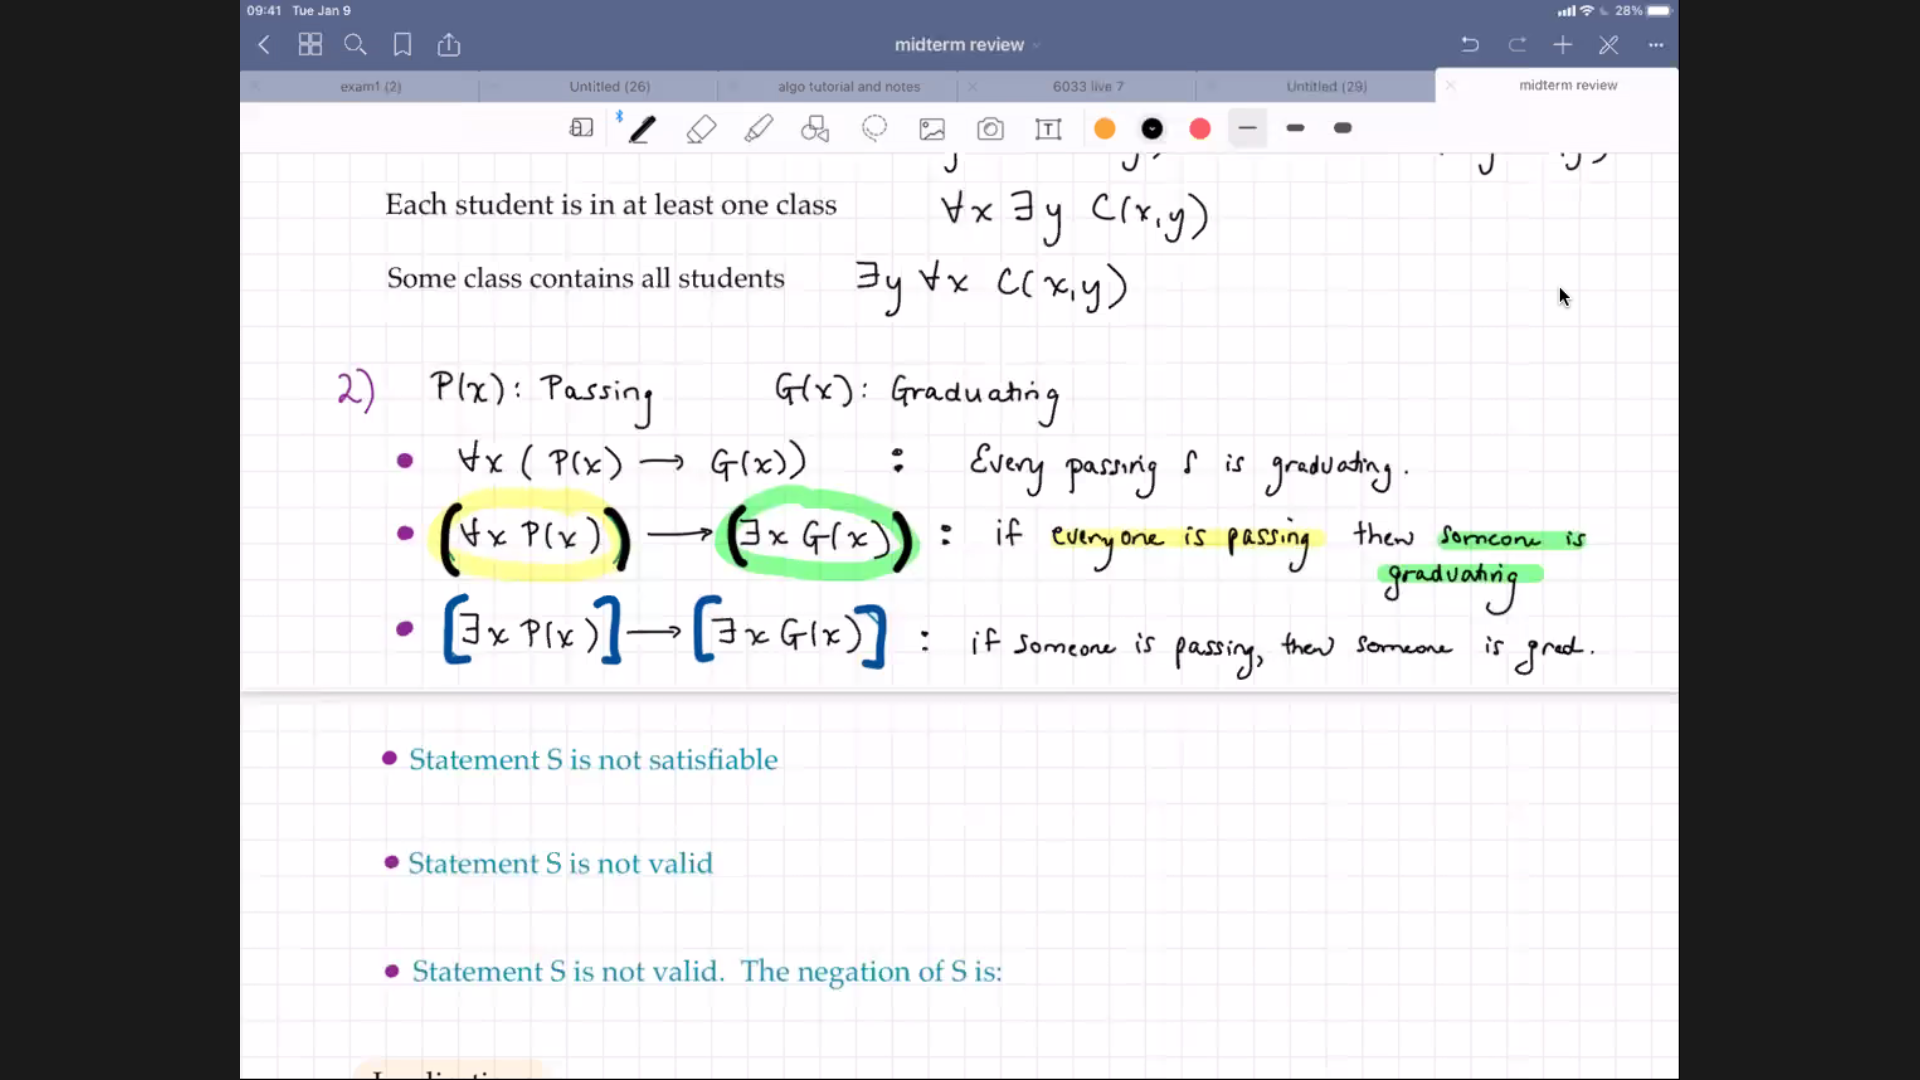 09:41 Tue Jan 9 28%
midterm review
exam1 (2) Untitled (26) algo tutorial and notes 6033 live 7 Untitled (29) midterm review
Each student is in at least one class ∀x ∃y C(x,y)
Some class contains all students ∃y ∀x C(x,y)
2) P(x): Passing G(x): Graduating
• ∀x ( P(x) → G(x)) : Every passing S is graduating.
• (∀x P(x)) → (∃x G(x)) : if everyone is passing then someone is
graduating
• [∃x P(x)] → [∃x G(x)] : if someone is passing, then someone is grad.
• Statement S is not satisfiable
• Statement S is not valid
• Statement S is not valid. The negation of S is: